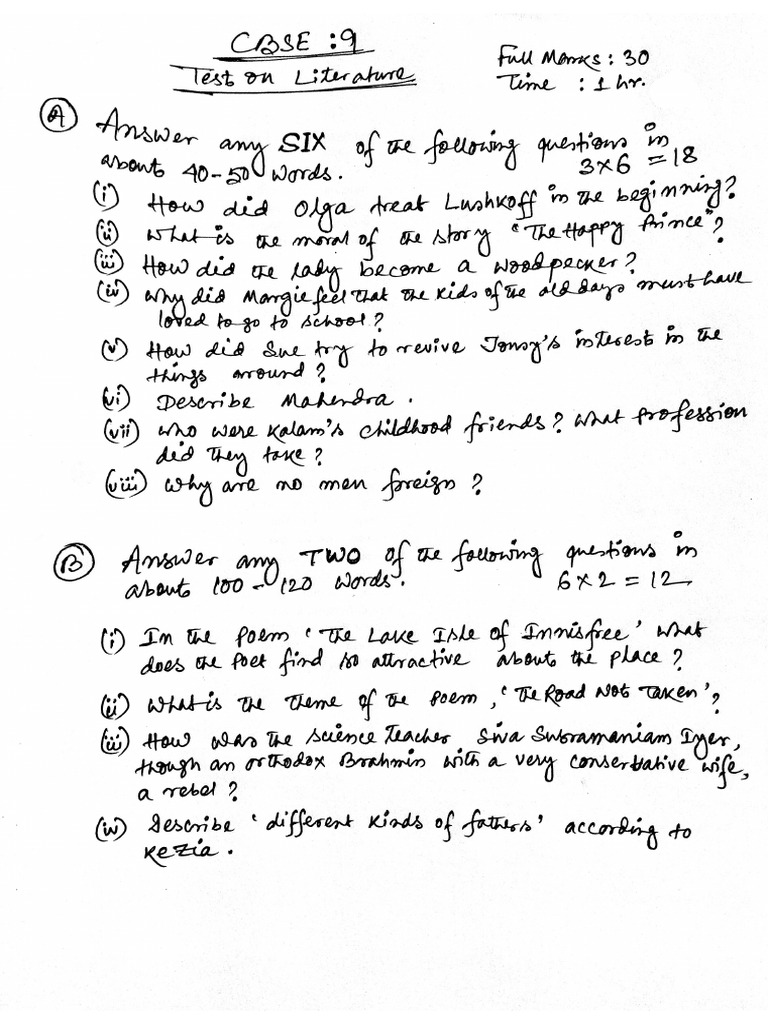 CBSE : 9
Test on Literature
Full Marks : 30
Time : 1 hr.
(A) Answer any SIX of the following questions in
about 40-50 words. 3x6 = 18
(i) How did Olga treat Lushkoff in the beginning?
(ii) What is the moral of the story "The Happy Prince"?
(iii) How did the lady become a woodpecker?
(iv) Why did Margie feel that the kids of the old days must have
loved to go to school?
(v) How did Sue try to revive Jonsy's interest in the
things around?
(vi) Describe Mahendra.
(vii) Who were Kalam's childhood friends? What profession
did they take?
(viii) Why are no men foreign?
(B) Answer any TWO of the following questions in
about 100-120 words. 6x2 = 12
(i) In the poem 'The Lake Isle of Innisfree' what
does the poet find so attractive about the place?
(ii) What is the theme of the poem, 'The Road Not Taken'?
(iii) How was the science teacher, Siva Subramaniam Iyer,
though an orthodox Brahmin with a very conservative wife,
a rebel?
(iv) Describe 'different kinds of fathers' according to
Kezia.